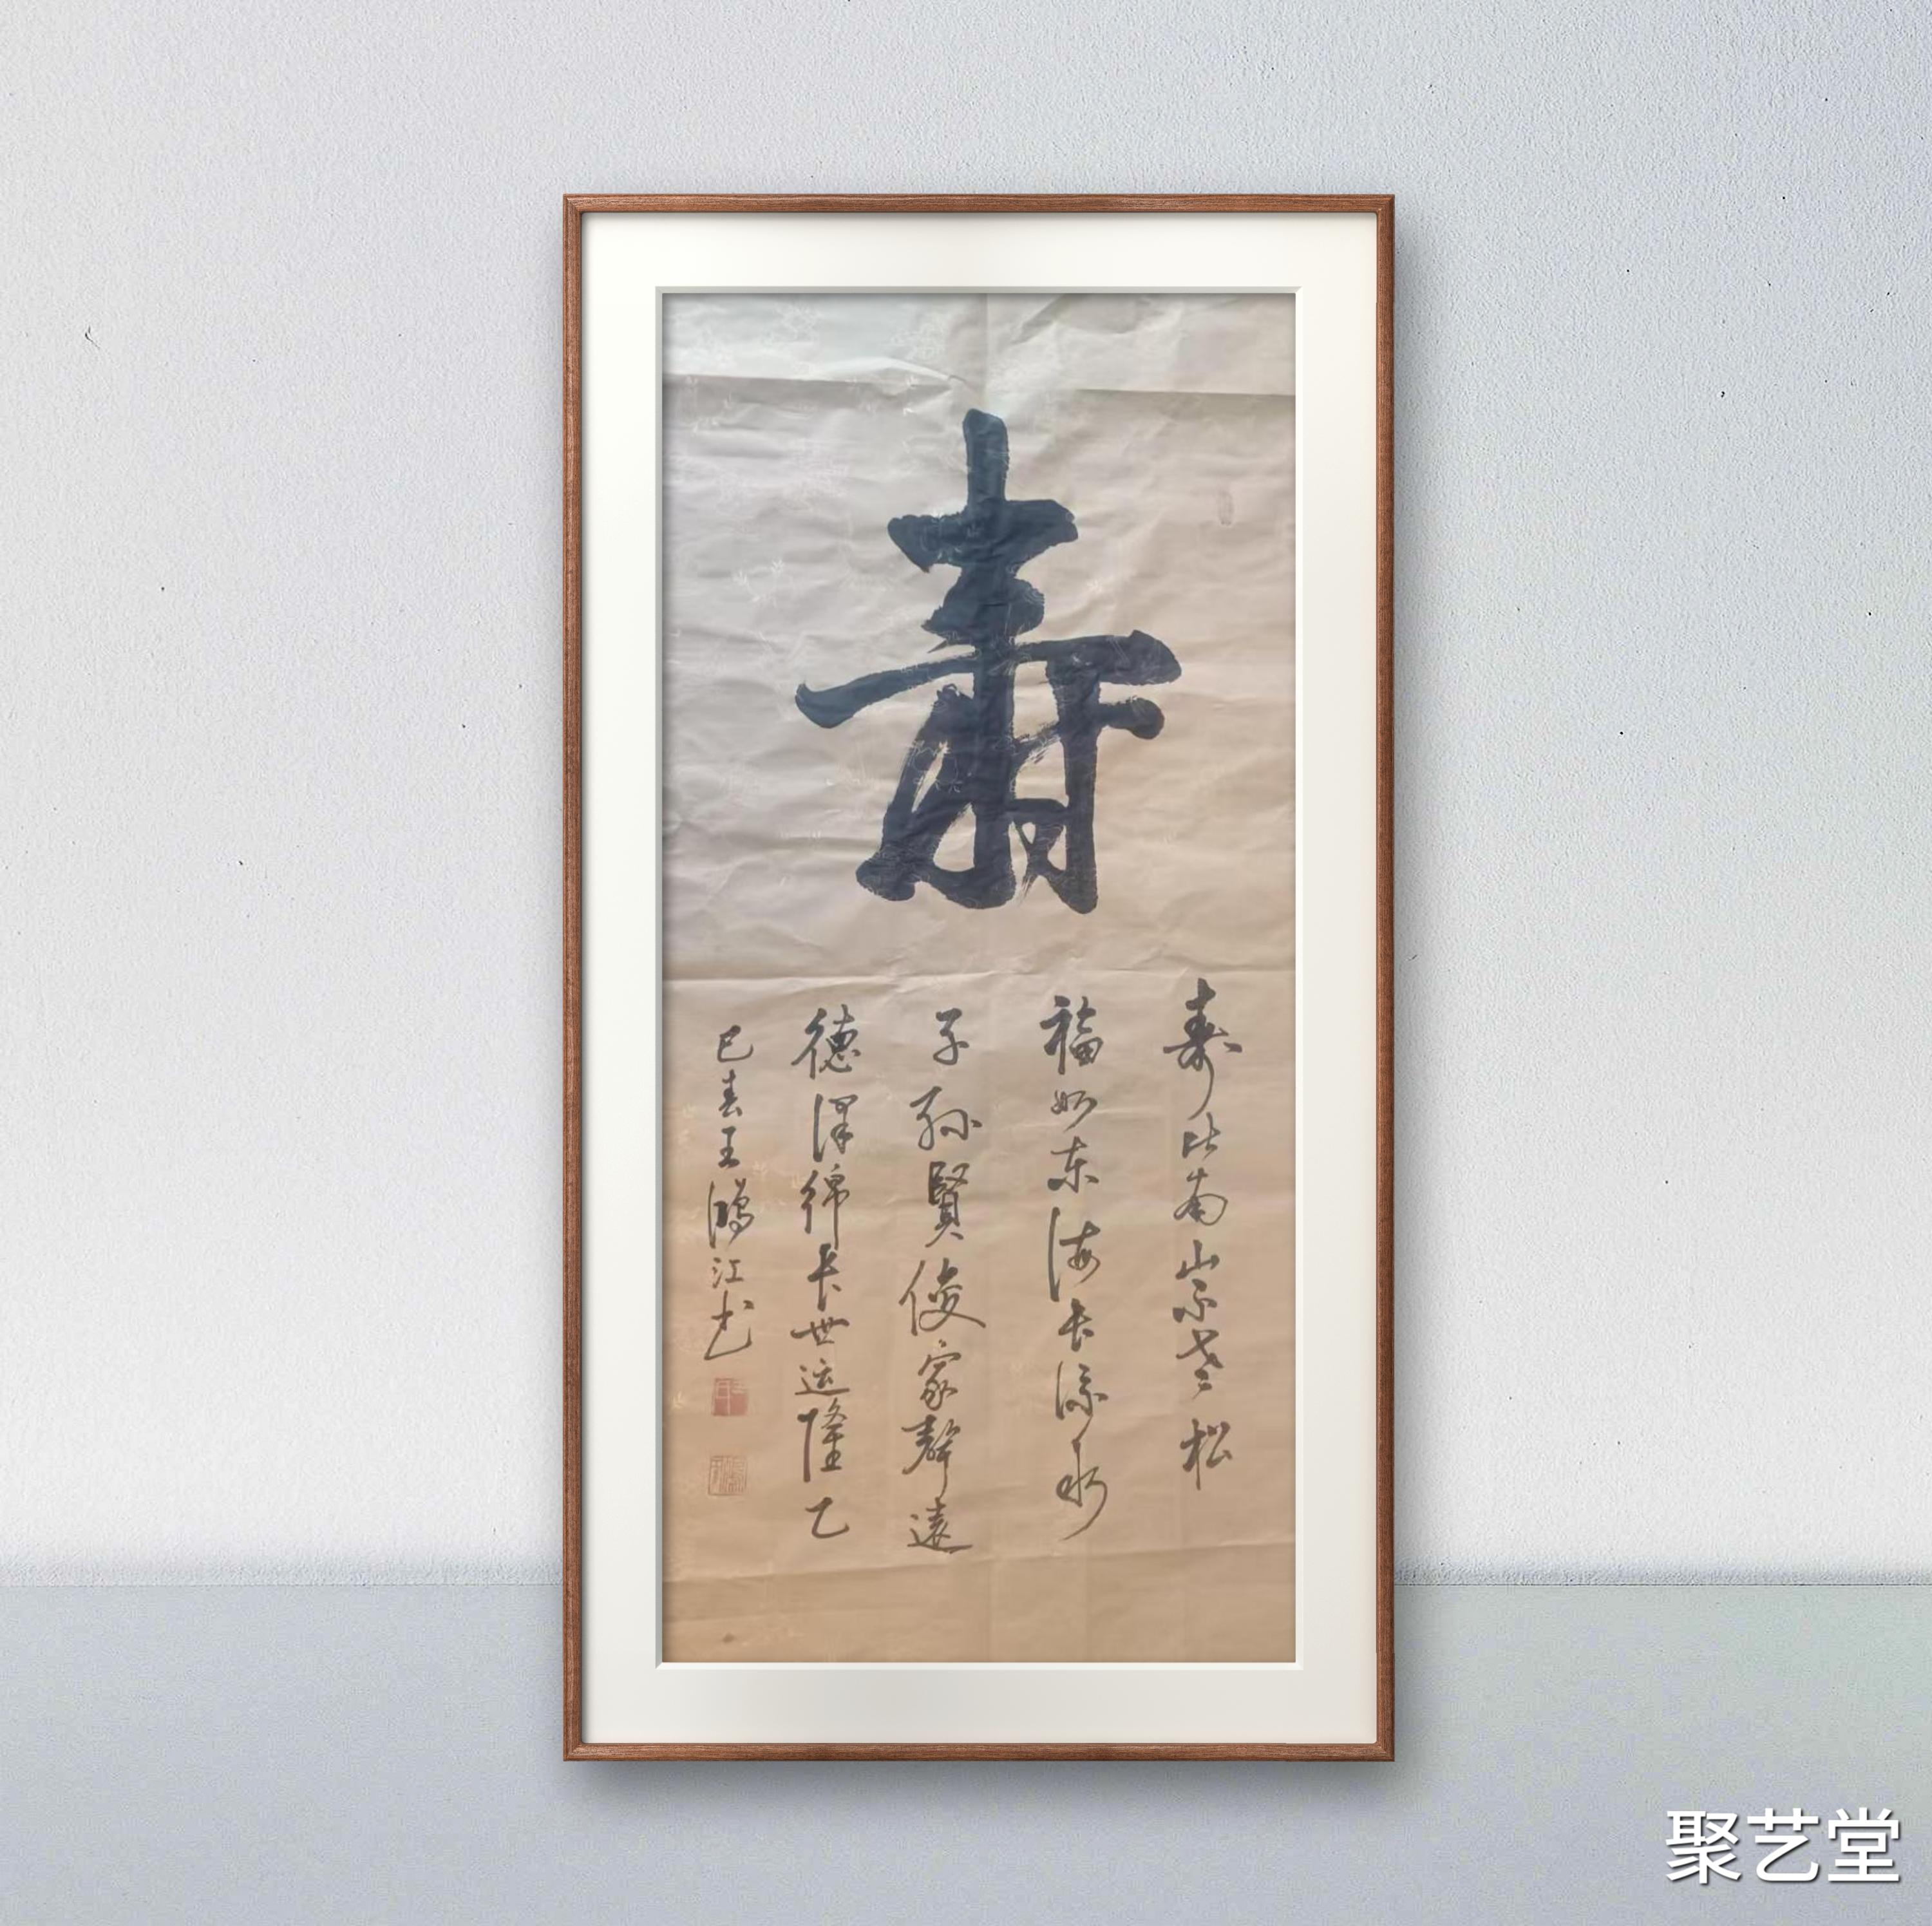 寿
寿比南山不老松
福如东海长流水
子孙賢俊家聲遠
德泽绵长世运隆乙
巳春王鴻江书
聚艺堂